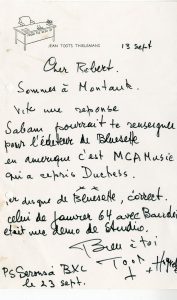 JEAN TOOTS THIELEMANS
13 sept
Cher Robert.
Sommes à Montauk.
Vite une réponse
Sabam pourrait te renseigner
pour l'éditeur de Bluesette
en amerique c'est MCA Music
qui a repris Duchess.
1er disque de Bluesette, correct.
celui de janvier 64 avec
était une démo de studio.
Bien à toi
Toots
PS Serons à BXL
le 23 sept.